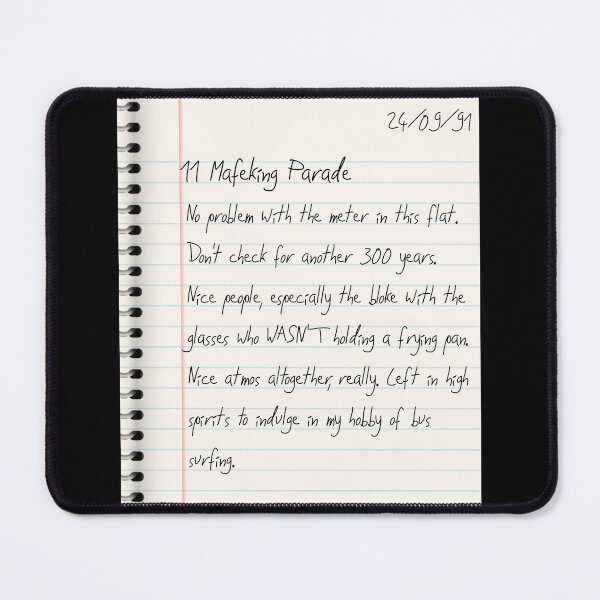 24/09/91
11 Mafeking Parade
No problem with the meter in this flat.
Don't check for another 300 years.
Nice people, especially the bloke with the
glasses who WASN'T holding a frying pan.
Nice atmos altogether, really. Left in high
spirits to indulge in my hobby of bus
surfing.